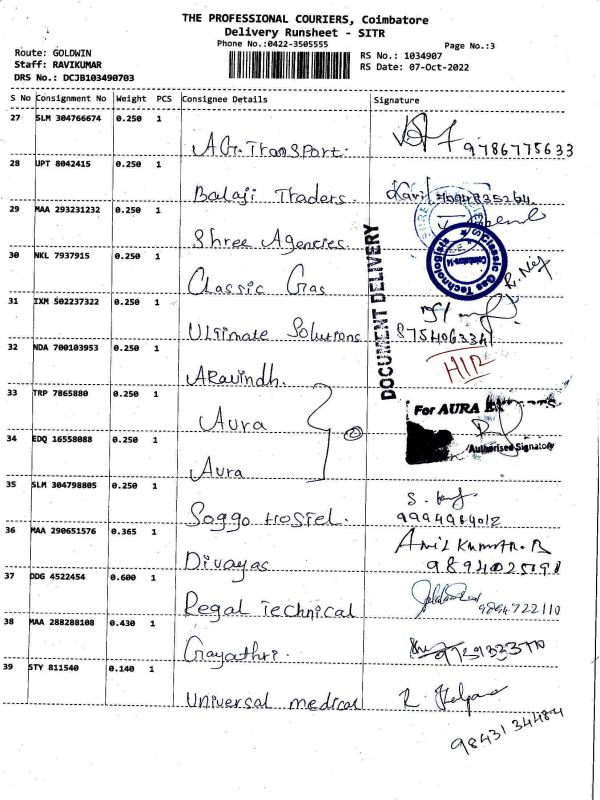 THE PROFESSIONAL COURIERS, Coimbatore
Delivery Runsheet - SITR
Phone No.:0422-3505555
Page No.:3
Route: GOLDWIN
Staff: RAVIKUMAR
DRS No.: DCJB103490703
RS No.: 1034907
RS Date: 07-Oct-2022
S No Consignment No Weight PCS Consignee Details Signature
27 SLM 304766674 0.250 1
A.G. Transport. 9786775633
28 UPT 8042415 0.250 1
Balaji Traders.
29 MAA 293231232 0.250 1
Shree Agencies
30 NKL 7937915 0.250 1
Classic Gas
Classic Gas Technologies
31 IXM 502237322 0.250 1
DOCUMENT DELIVERY
Ultimate Solutions
32 NDA 700103953 0.250 1
Aravindh.
33 TRP 7865880 0.250 1
Aura
For AURA
34 EDQ 16558088 0.250 1
2
Authorised Signatory
Aura
35 SLM 304798805 0.250 1
Soggo Hostel.
36 MAA 290651576 0.365 1
Divayas Anil Kumar. R
37 DDG 4522454 0.600 1
Regal Technical 9894722110
38 MAA 288288108 0.430 1
Gayathri.
39 STY 811540 0.140 1
Universal medical
98431 34484